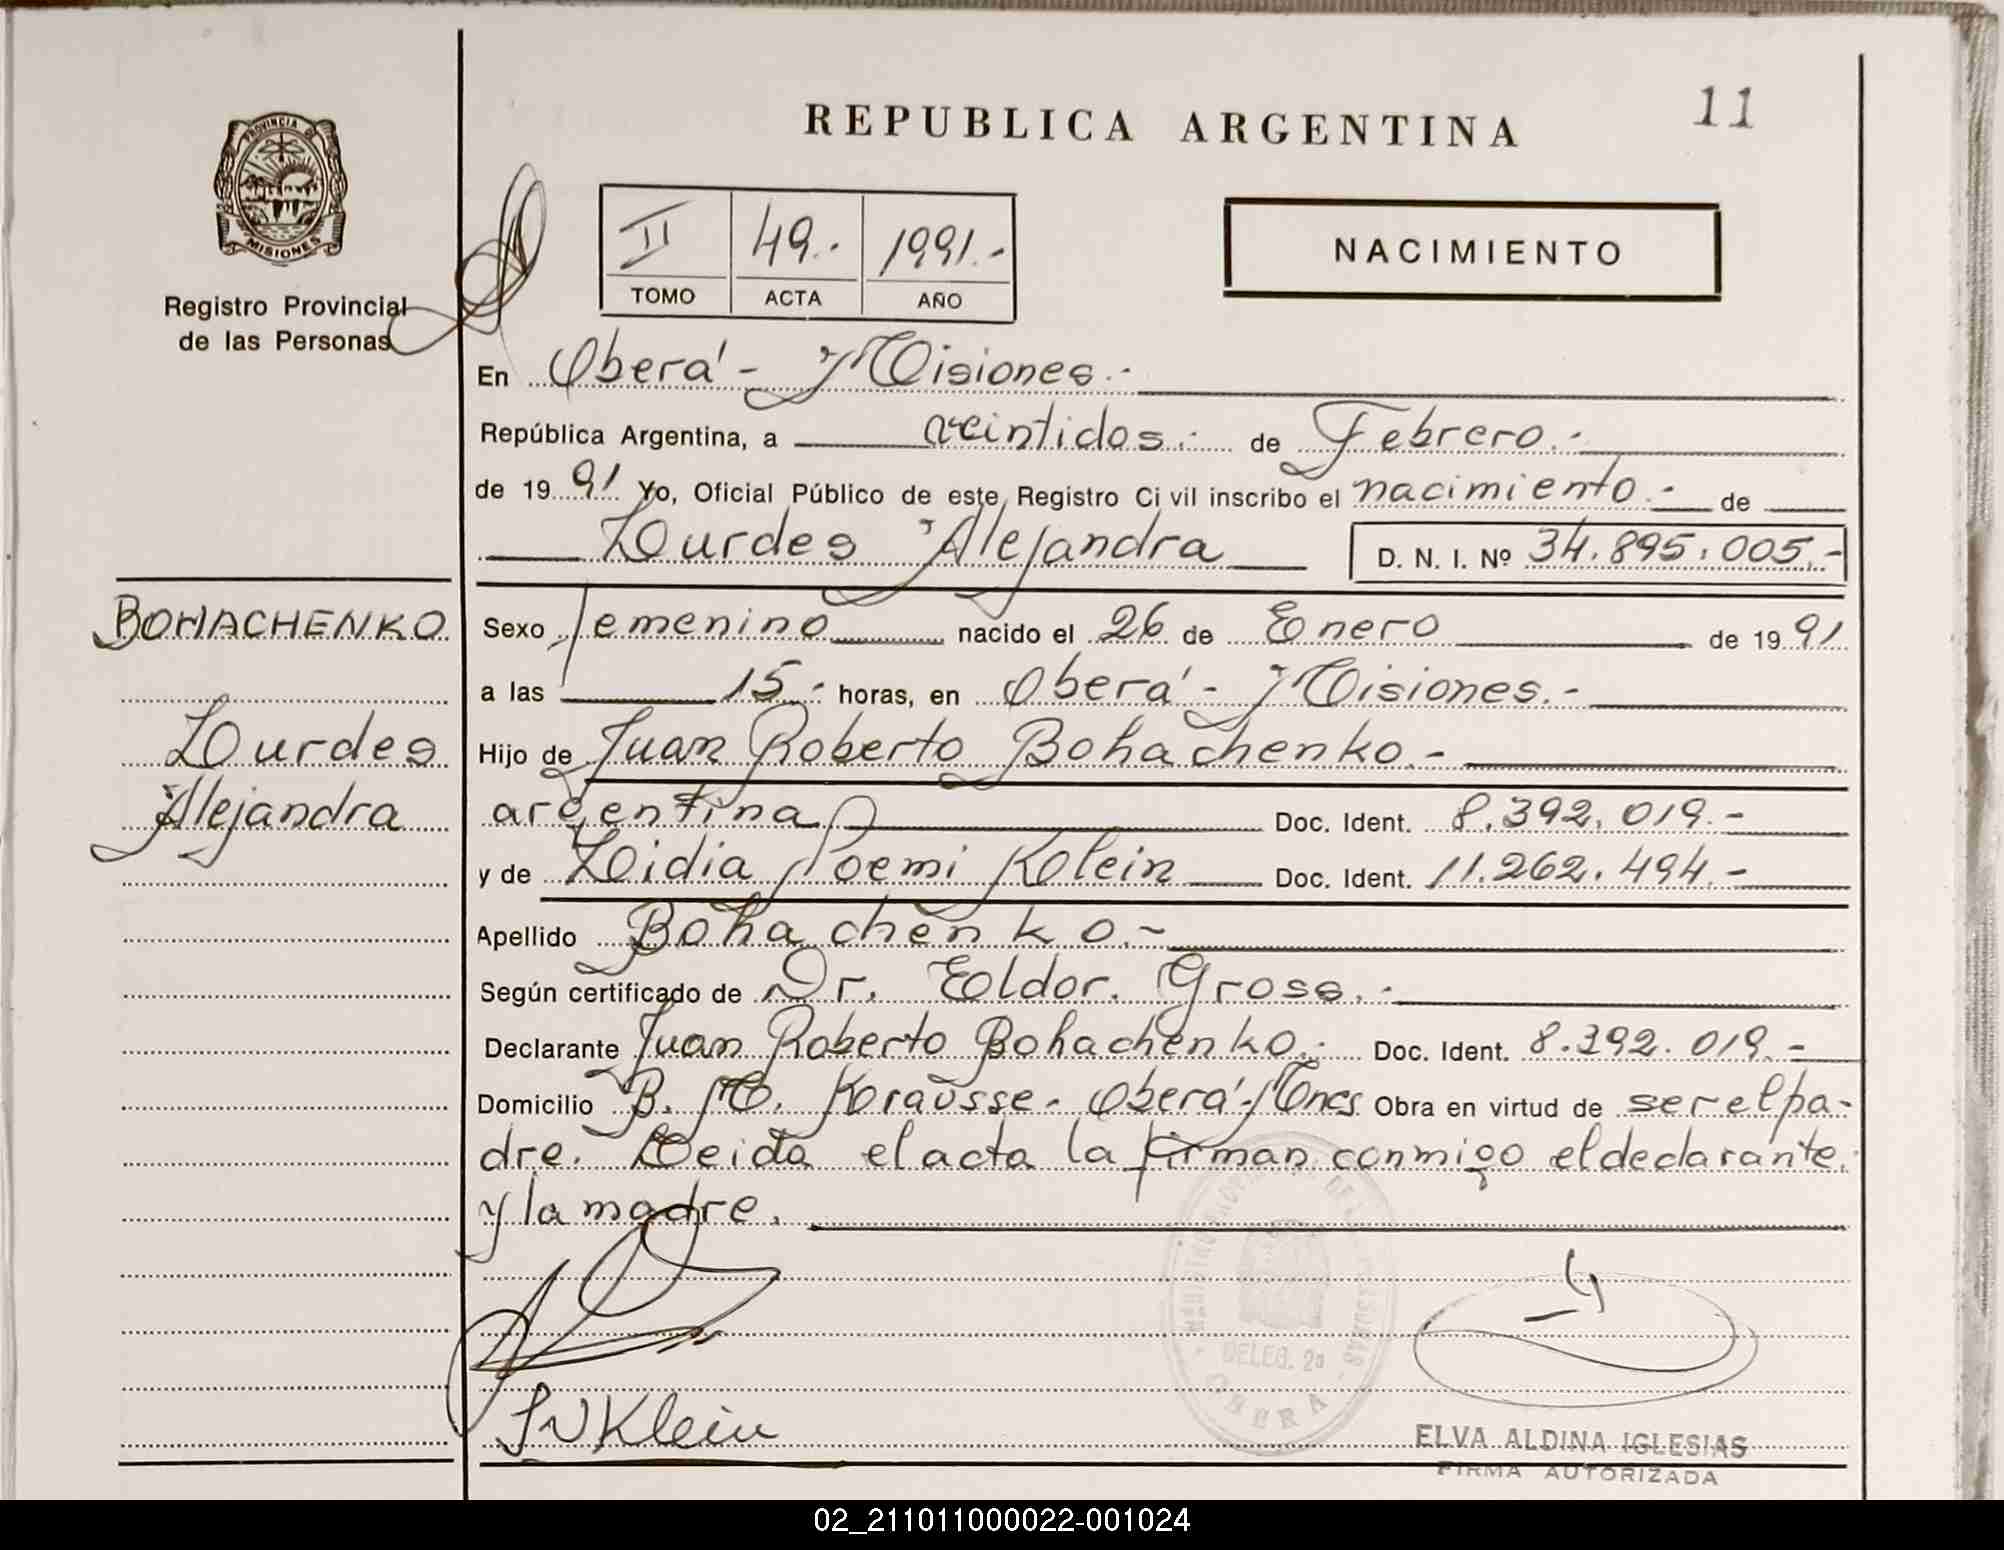 REPUBLICA ARGENTINA
11
PROVINCIA DE
MISIONES
Registro Provincial
de las Personas
II 49.- 1991.-
TOMO ACTA AÑO
NACIMIENTO
En Oberá - Misiones.-
República Argentina, a veintidos.- de Febrero.-
de 1991 Yo, Oficial Público de este Registro Civil inscribo el nacimiento.- de
Lourdes Alejandra D. N. I. Nº 34.895.005.-
BOHACHENKO
Lourdes
Alejandra
Sexo femenino nacido el 26 de Enero de 1991
a las 15.- horas, en Oberá - Misiones.-
Hijo de Juan Roberto Bohachenko.-
argentina Doc. Ident. 8.392.019.-
y de Lidia Noemi Klein Doc. Ident. 11.262.494.-
Apellido Bohachenko.-
Según certificado de Dr. Eldor. Gross.-
Declarante Juan Roberto Bohachenko.- Doc. Ident. 8.392.019.-
Domicilio B. M. Krausse - Oberá - Mnes Obra en virtud de ser el pa-
dre. Leida el acta la firman conmigo el declarante
y la madre.
DELEG. 2a
OBERA
LNKlein
ELVA ALDINA IGLESIAS
FIRMA AUTORIZADA
02_211011000022-001024